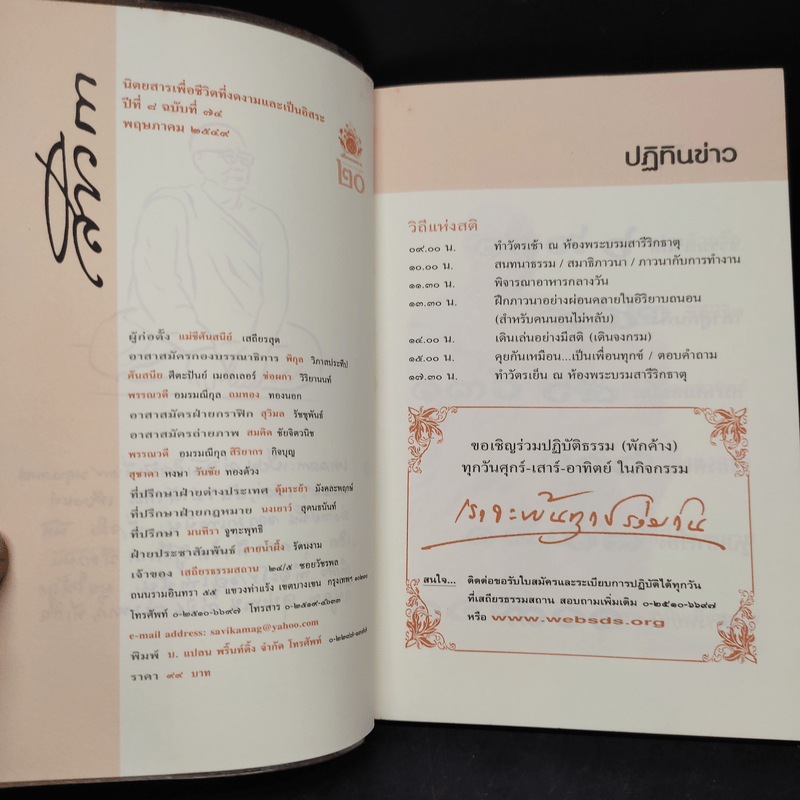 สาวิกา
นิตยสารเพื่อชีวิตที่งดงามและเป็นอิสระ
ปีที่ ๘ ฉบับที่ ๗๔
พฤษภาคม ๒๕๔๙
๒๐
ผู้ก่อตั้ง แม่ชีศันสนีย์ เสถียรสุต
อาสาสมัครกองบรรณาธิการ พิกุล วิภาสประทีป
ศันสนีย ศีตะปันย์ เมอลเลอร์ ช่อผกา วิริยานนท์
พรรณวดี อมรมณีกุล ถมทอง ทองนอก
อาสาสมัครฝ่ายกราฟิก สุวิมล วัชชุพันธ์
อาสาสมัครถ่ายภาพ สมคิด ชัยจิตวนิช
พรรณวดี อมรมณีกุล สิริยากร กิจบุญ
สุชาดา หงษา วันชัย ทองด้วง
ที่ปรึกษาฝ่ายต่างประเทศ คุ้มระย้า มังคละพฤกษ์
ที่ปรึกษาฝ่ายกฎหมาย นงเยาว์ สุคนธนันท์
ที่ปรึกษา มนทิรา จูฑะพุทธิ
ฝ่ายประชาสัมพันธ์ สายน้ำผึ้ง รัตนงาม
เจ้าของ เสถียรธรรมสถาน ๒๔/๕ ซอยวัชรพล
ถนนรามอินทรา ๕๕ แขวงท่าแร้ง เขตบางเขน กรุงเทพฯ
โทรศัพท์ ๐-๒๕๑๐-๖๖๙๗ โทรสาร ๐-๒๕๑๙-๔๖๓๓
e-mail address: savikamag@yahoo.com
พิมพ์ บ. แปลน พริ้นท์ติ้ง จำกัด โทรศัพท์
ราคา ๙๙ บาท
ปฏิทินข่าว
วิถีแห่งสติ
๐๙.๐๐ น. ทำวัตรเช้า ณ ห้องพระบรมสารีริกธาตุ
๑๐.๐๐ น. สนทนาธรรม / สมาธิภาวนา / ภาวนากับการทำงาน
๑๑.๓๐ น. พิจารณาอาหารกลางวัน
๑๓.๓๐ น. ฝึกภาวนาอย่างผ่อนคลายในอิริยาบถนอน
(สำหรับคนนอนไม่หลับ)
๑๔.๐๐ น. เดินเล่นอย่างมีสติ (เดินจงกรม)
๑๕.๐๐ น. คุยกันเหมือน...เป็นเพื่อนทุกข์ / ตอบคำถาม
๑๗.๓๐ น. ทำวัตรเย็น ณ ห้องพระบรมสารีริกธาตุ
ขอเชิญร่วมปฏิบัติธรรม (พักค้าง)
ทุกวันศุกร์-เสาร์-อาทิตย์ ในกิจกรรม
เราจะพ้นทุกข์ร่วมกัน
สนใจ... ติดต่อขอรับใบสมัครและระเบียบการปฏิบัติได้ทุกวัน
ที่เสถียรธรรมสถาน สอบถามเพิ่มเติม ๐-๒๕๑๐-๖๖๙๗
หรือ www.websds.org